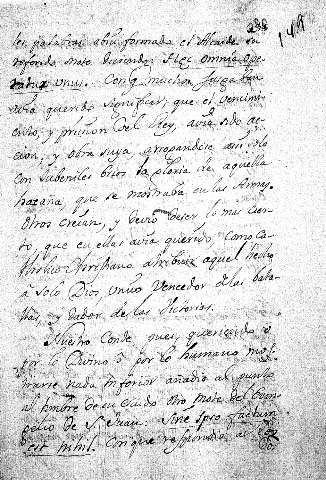 las palabras abía formado el Alcaide su
referido mote diciendo: Hæc omnia ope
ratur unus. Con q muchos juzgaban
avía querido significar, que el vencimi
ento, y prision del Rey, avía sido ac
cion, y obra suya, arropandose así solo
con Jubeniles brios la gloria de aquella
hazaña que se mostraba en las Armas.
Otros creían, y devio de ser lo mas cier
to, que en ellas avía querido, como Ca
tholico Christiano atribuir aquel hecho
à solo Dios, unico Vencedor de las bata
llas, y dador de las Victorias.
Nuestro Conde, pues, queriendo ò
por lo Divino ò por lo humano mos
trarse nada inferior añadio al punto
al timbre de su Escudo otro mote del Evan
gelio de S. Juan: Sine ipso factum
est nihil. Con que respondio al